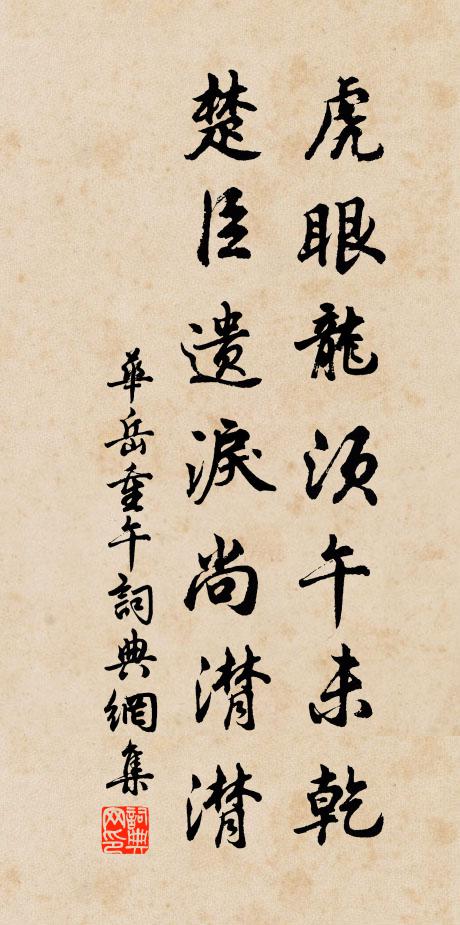 虎眼龍須午未乾
楚臣遺淚尚潸潸
華岳重午詞典網集
詞典网印